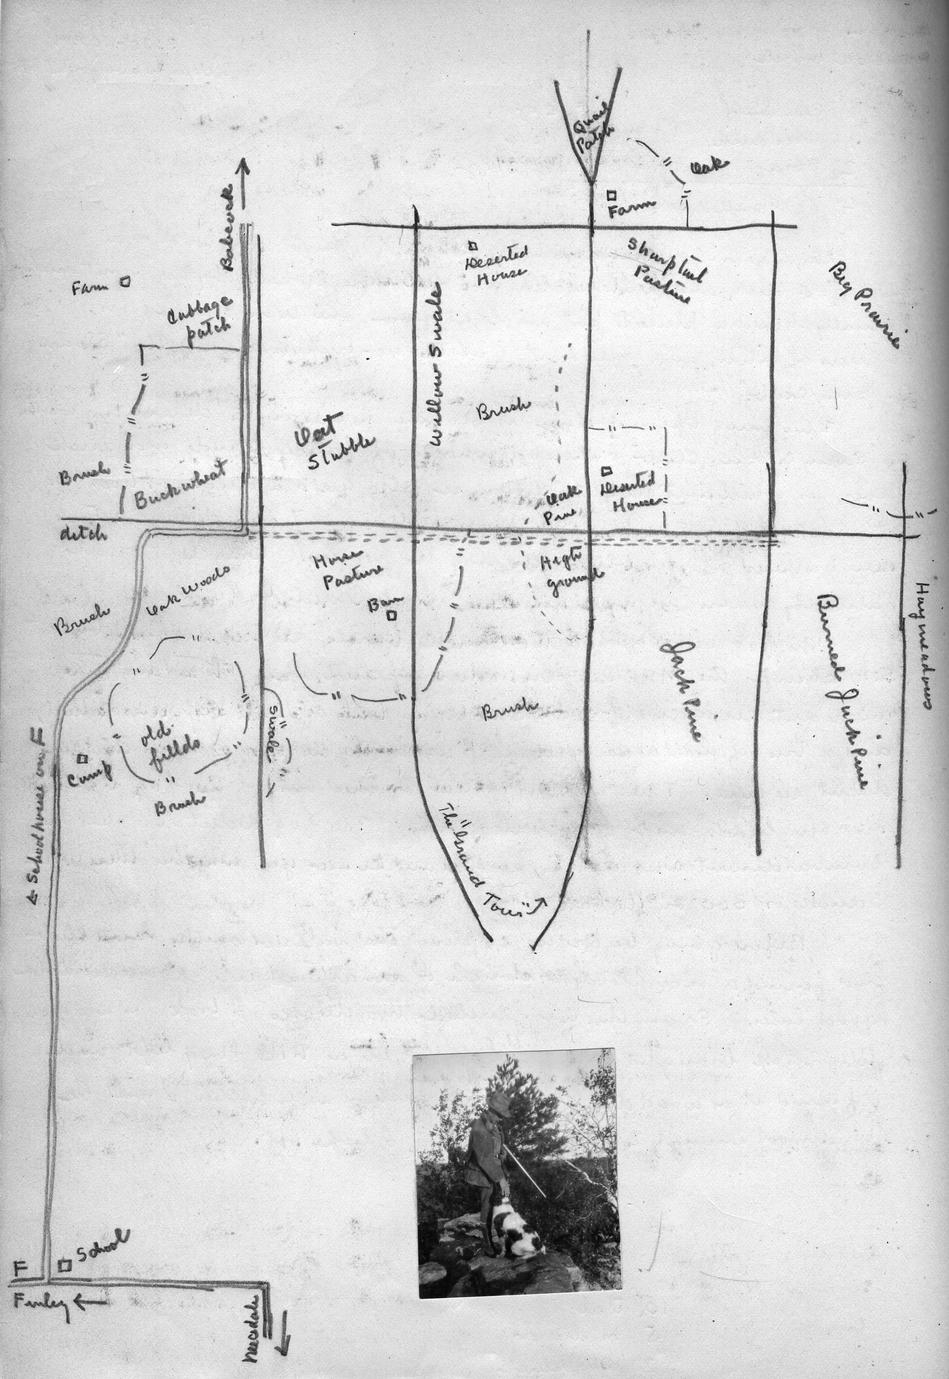 Quail
Patch
Oak
Farm
Babcock
Deserted
House
Sharptail
Pasture
Big Prairie
Farm
Cabbage
patch
Willow Swale
Oat
Stubble
Brush
Brush
Buckwheat
Oak
Pine
Deserted
House
ditch
Horse
Pasture
High
ground
Barn
Brush
Oak Woods
Burned Jack Pine
Hay meadows
Jack Pine
old
fields
Swale
Brush
Camp
Brush
← Schoolhouse on F
The "Grand Tour"
School
F
Finley ←
Necedah